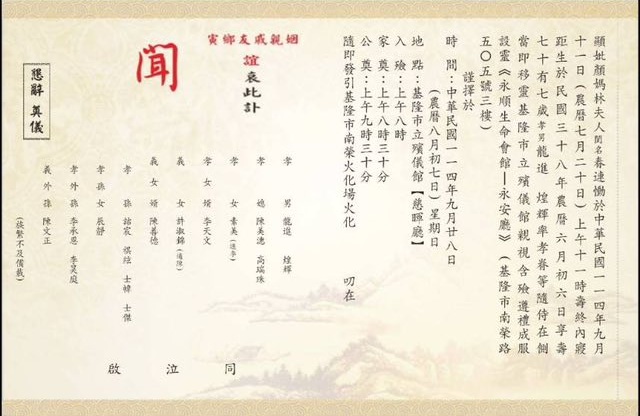 顯妣顏媽林夫人閨名春連慟於中華民國一一四年九月
十一日(農曆七月二十日)上午十一時壽終內寢
距生於民國三十八年農曆六月初六日享壽
七十有七歲孝男龍進 煌輝率孝眷等隨侍在側
當即移靈基隆市立殯儀館親視含殮遵禮成服
設靈《永順生命會館—永安廳》(基隆市南榮路
五○五號三樓)
謹擇於
時間:中華民國一一四年九月廿八日
(農曆八月初七日)星期日
地點:基隆市立殯儀館【慈暉廳】
入殮:上午八時
家奠:上午八時三十分
公奠:上午九時三十分
隨即發引基隆市南榮火化場火化
叨在
姻親戚友鄉寅
誼哀此訃
聞
孝男 龍進 煌輝
孝媳 陳美滺 高瑞珠
孝女 素美(適李)
孝女婿 李天文
義女 許淑錦(適陳)
義女婿 陳善德
孝孫 詰宸 士幃 士傑
孝孫女 辰靜
孝外孫 李承恩 李昊庭
義外孫 陳文正
(族繁不及備載)
同泣啟
懇辭 奠儀